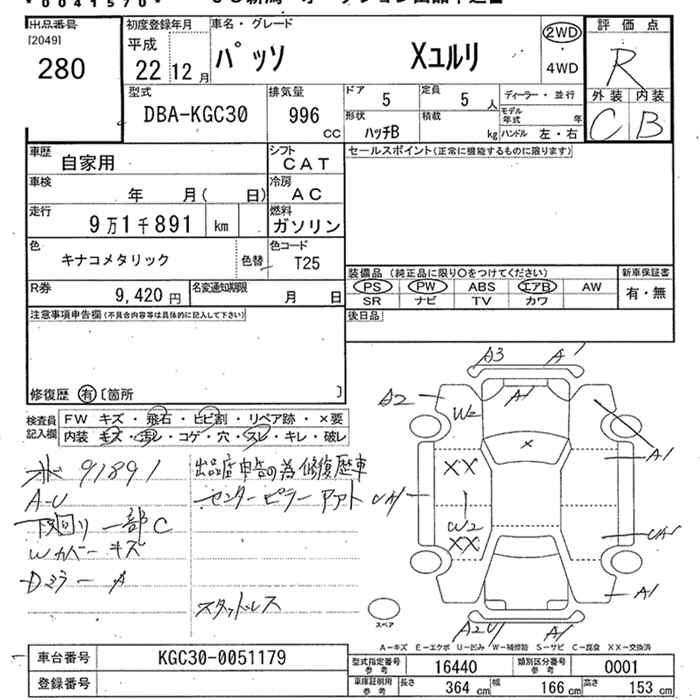 *0041570*
出品番号
[2049]
280
初度登録年月
平成
22 12月
車名・グレード
パッソ Xユルリ
2WD
4WD
評価点
R
外装 内装
C B
型式
DBA-KGC30
排気量
996
CC
ドア
5
定員
5 人
形状
ハッチB
積載
kg
ディーラー・並行
モデル年式 年
ハンドル 左・右
車歴
自家用
シフト
CAT
車検
年 月( 日)
冷房
AC
走行
9万1千891 km
燃料
ガソリン
色
キナコメタリック
色替
色コード
T25
R券
9,420円
名変通知期限
月 日
セールスポイント(正常に機能するものに限ります)
装備品(純正品に限り○をつけてください)
新車保証書
PS PW ABS エアB AW
有・無
SR ナビ TV カワ
後日品
注意事項申告欄(不具合内容等は具体的に記入して下さい)
修復歴 有 〔箇所 〕
検査員記入欄
FW キズ・飛石・ヒビ割・リペア跡・×要
内装 キズ・汚レ・コゲ・穴・スレ・キレ・破レ
91891
A-U
下回り 一部C
Wカバーキズ
Dミラー A
出品店申告の為修復歴車
センターピラーアウト
スタッドレス
A3 A1
A2
W2
A1
A1
×
XX
UA1
W2
XX
A1
A2U1
A1
スペア
A-キズ E-エクボ U-凹み W-補修跡 S-サビ C-腐食 XX-交換済
車台番号
KGC30-0051179
登録番号
型式指定番号
参考
16440
類別区分番号
参考
0001
車庫証明用
参考
長さ
364 cm
幅
166 cm
高さ
153 cm